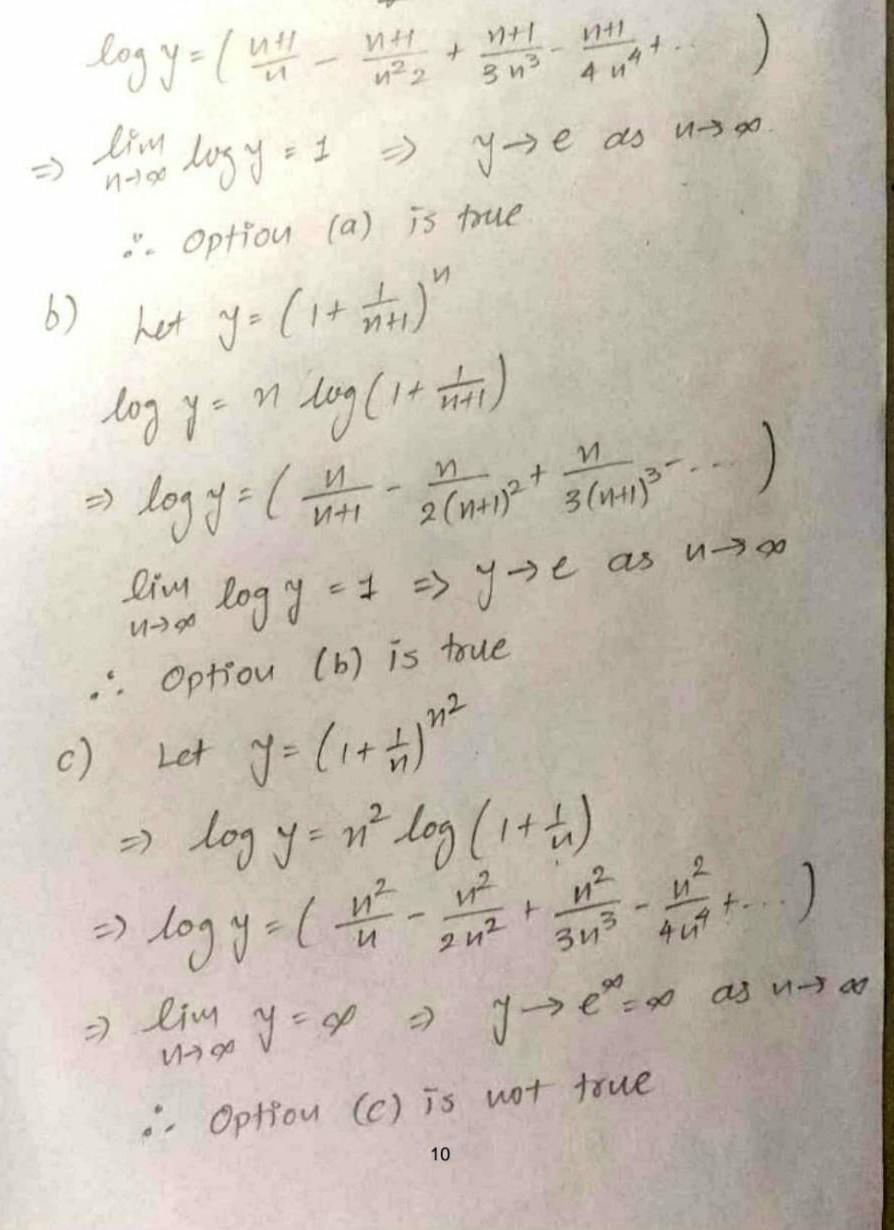 log y = ( (n+1)/n - (n+1)/(n² 2) + (n+1)/(3n³) - (n+1)/(4n⁴) + .. )
⇒ lim n→∞ log y = 1 ⇒ y → e as n → ∞.
∴ Option (a) is true
b) Let y = (1 + 1/(n+1))ⁿ
log y = n log(1 + 1/(n+1))
⇒ log y = ( n/(n+1) - n/(2(n+1)²) + n/(3(n+1)³) - ... )
lim n→∞ log y = 1 ⇒ y → e as n → ∞
∴ Option (b) is true
c) Let y = (1 + 1/n)^n²
⇒ log y = n² log(1 + 1/n)
⇒ log y = ( n²/n - n²/(2n²) + n²/(3n³) - n²/(4n⁴) + ... )
⇒ lim n→∞ y = ∞ ⇒ y → e^∞ = ∞ as n → ∞
∴ Option (c) is not true
10